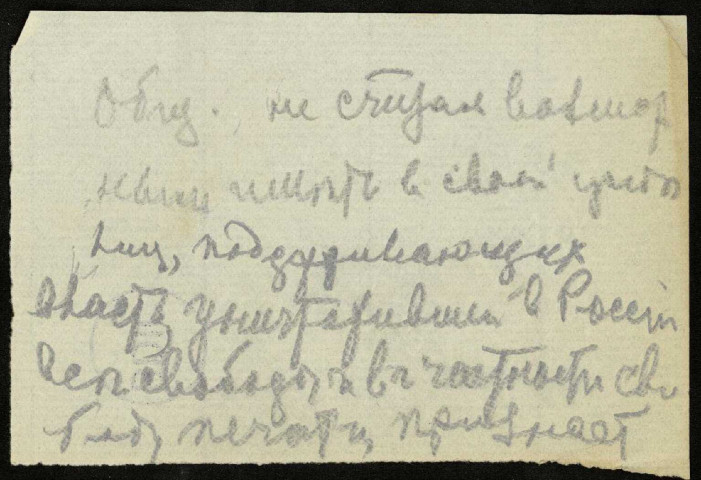 Общ. не считая возмож
ным иметь в своей среде
лиц, поддерживающих
власть, уничтожившей в России
все свободы и в частности сво
боду печати, признает